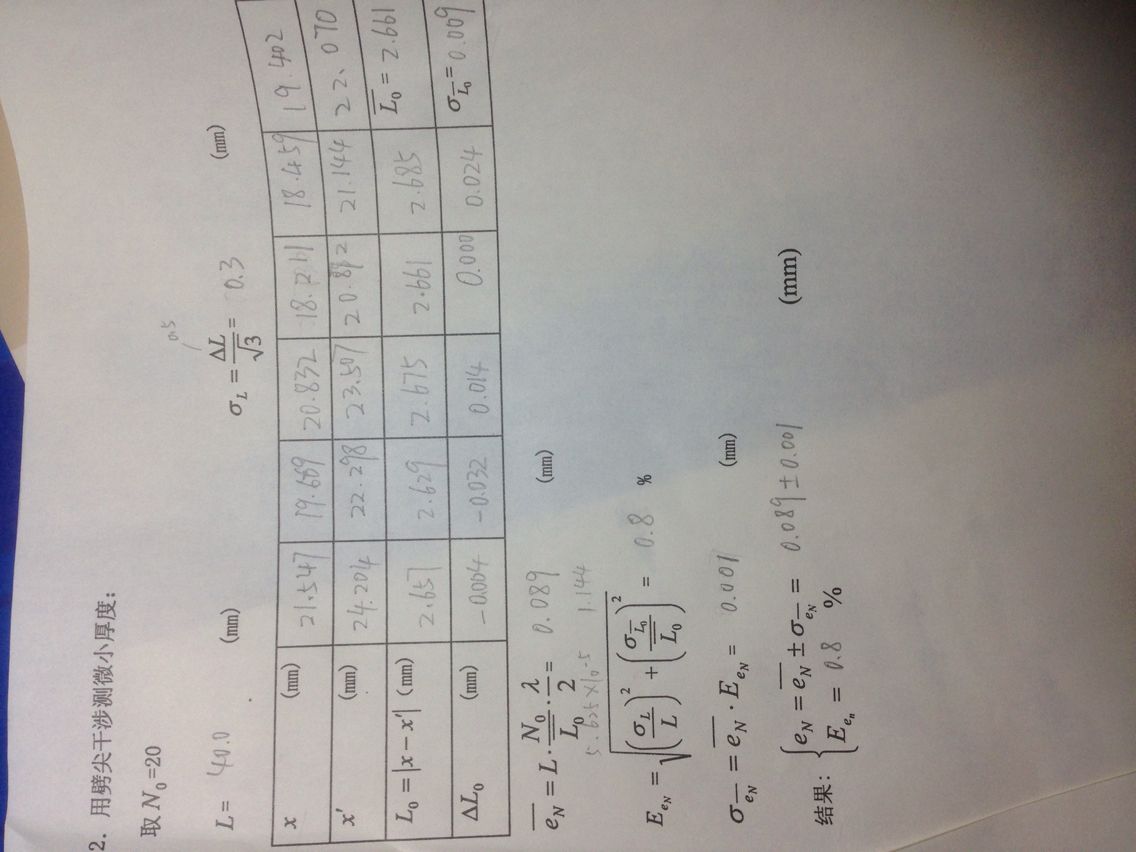 2. 用劈尖干涉测微小厚度:
取 N₀=20
0.5
L= 40.0 (mm) σ_L = ΔL/√3 = 0.3 (mm)
x (mm) 21.547 19.669 20.832 18.211 18.459 19.402
x′ (mm) 24.204 22.298 23.507 20.872 21.144 22.070
L₀ = |x − x′| (mm) 2.657 2.629 2.675 2.661 2.685 L̅₀ = 2.661
ΔL₀ (mm) −0.004 −0.032 0.014 0.000 0.024 σ_L̅₀ = 0.009
e̅_N = L · N₀/L̅₀ · λ/2 = 0.089 (mm)
5.625×10⁻⁵ 1.144
E_eN = √((σ_L/L)² + (σ_L̅₀/L̅₀)²) = 0.8 %
σ_e̅N = e̅_N · E_eN = 0.001 (mm)
结果: { e_N = e̅_N ± σ_e̅N = 0.089±0.001 (mm)
E_en = 0.8 %